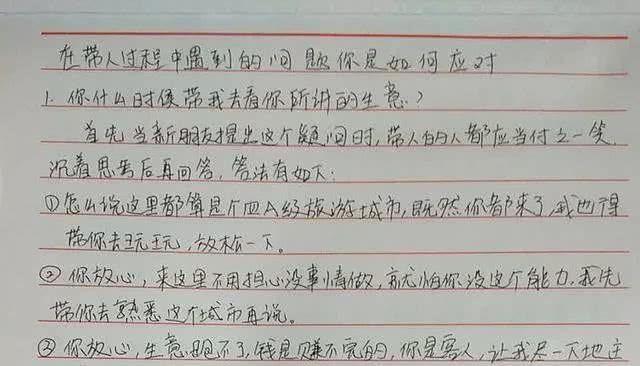 在带人过程中遇到的问题你是如何应对
1. 你什么时候带我去看你所讲的生意?
首先当新朋友提出这个疑问时,带人的人都应当付之一笑,
沉着思考后再回答,答法有如下:
①怎么说这里都算是个四A级旅游城市,既然你都来了,我也得
带你去玩玩,放松一下。
②你放心,来这里不用担心没事情做,就怕你没这个能力.我先
带你去熟悉这个城市再说。
③你放心,生意跑不了,钱是赚不完的,你是客人,让我尽一下地主